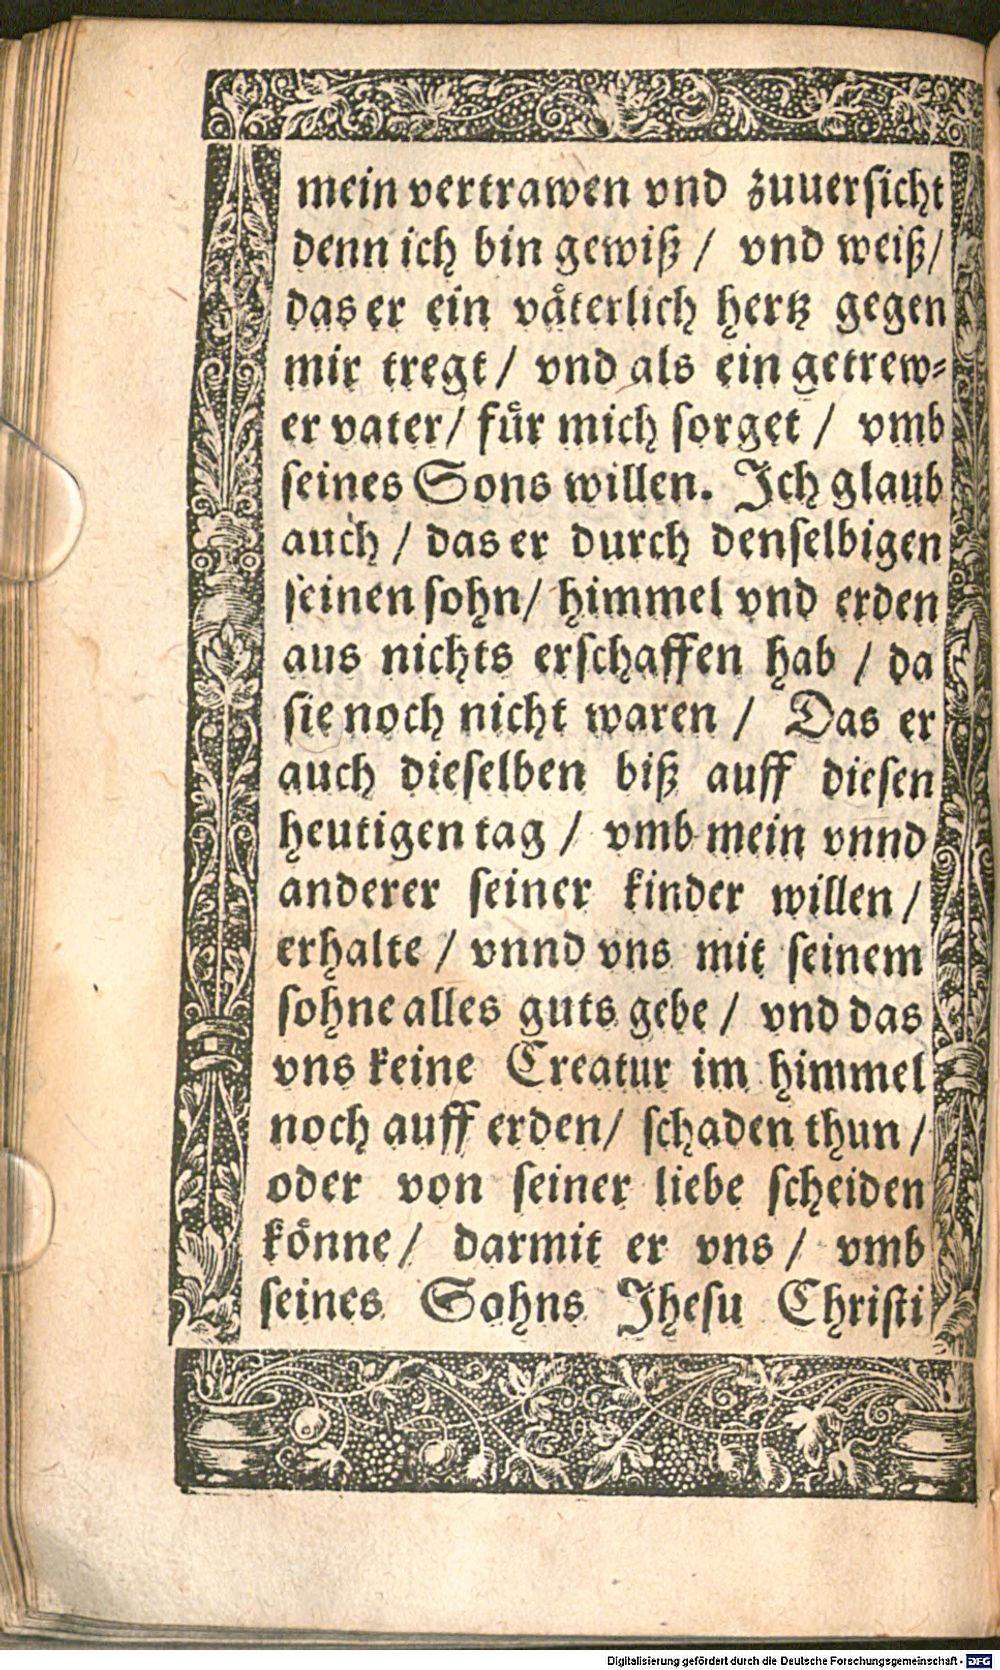 mein vertrawen vnd zuuersicht
denn ich bin gewiß / vnd weiß /
das er ein vaͤterlich hertz gegen
mir tregt / vnd als ein getrew⸗
er vater / fuͤr mich sorget / vmb
seines Sons willen. Ich glaub
auch / das er durch denselbigen
seinen sohn / himmel vnd erden
aus nichts erschaffen hab / da
sie noch nicht waren / Das er
auch dieselben biß auff diesen
heutigen tag / vmb mein vnnd
anderer seiner kinder willen /
erhalte / vnnd vns mit seinem
sohne alles guts gebe / vnd das
vns keine Creatur im himmel
noch auff erden / schaden thun /
oder von seiner liebe scheiden
koͤnne / darmit er vns / vmb
seines Sohns Jhesu Christi
Digitalisierung gefördert durch die Deutsche Forschungsgemeinschaft - DFG